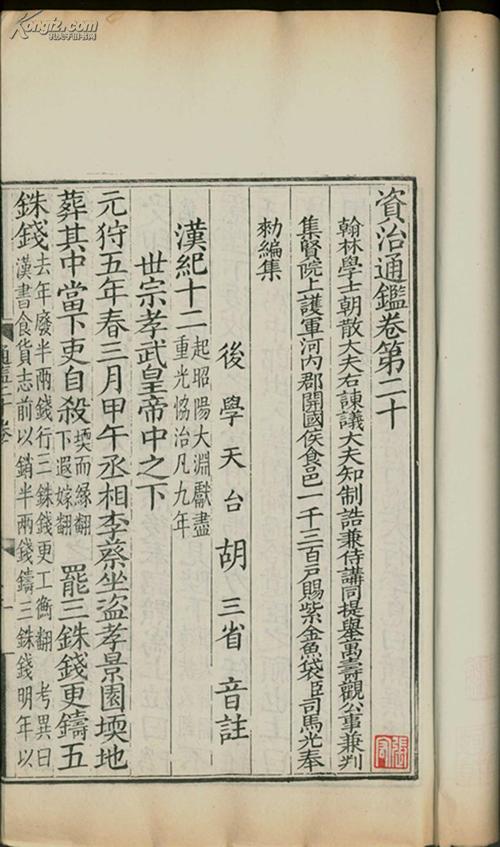 資治通鑑卷第二十
翰林學士朝散大夫右諫議大夫知制誥兼侍講同提舉萬壽觀公事兼判
集賢院上護軍河內郡開國侯食邑一千三百戶賜紫金魚袋臣司馬光奉
勑編集
後學天台胡三省音註
漢紀十二
起昭陽大淵獻盡
重光協洽凡九年
世宗孝武皇帝中之下
元狩五年春三月甲午丞相李蔡坐盜孝景園堧地
葬其中當下吏自殺
堧而緣翻
下遐嫁翻
罷三銖錢更鑄五
銖錢
去年廢半兩錢行三銖錢更工衡翻 考異曰
漢書食貨志前以銷半兩錢鑄三銖錢明年以
Kongfz.com